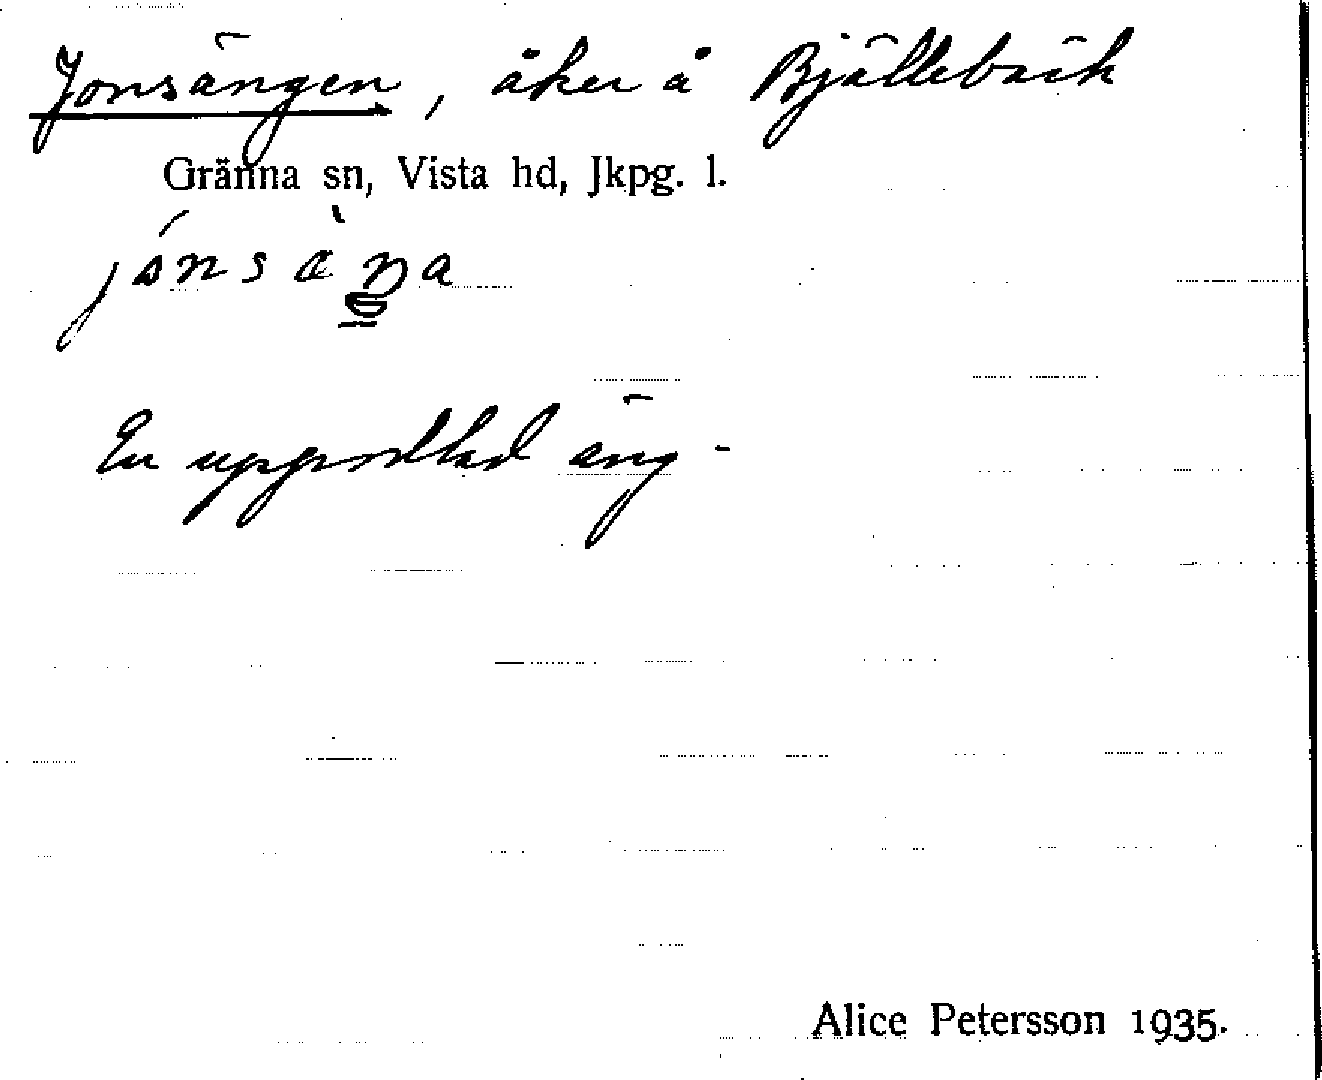 Jonsängen, åker å Bjällebäck
Gränna sn, Vista hd, Jkpg. l.
jónsæ̀ŋa
En uppodlad äng -
Alice Petersson 1935.